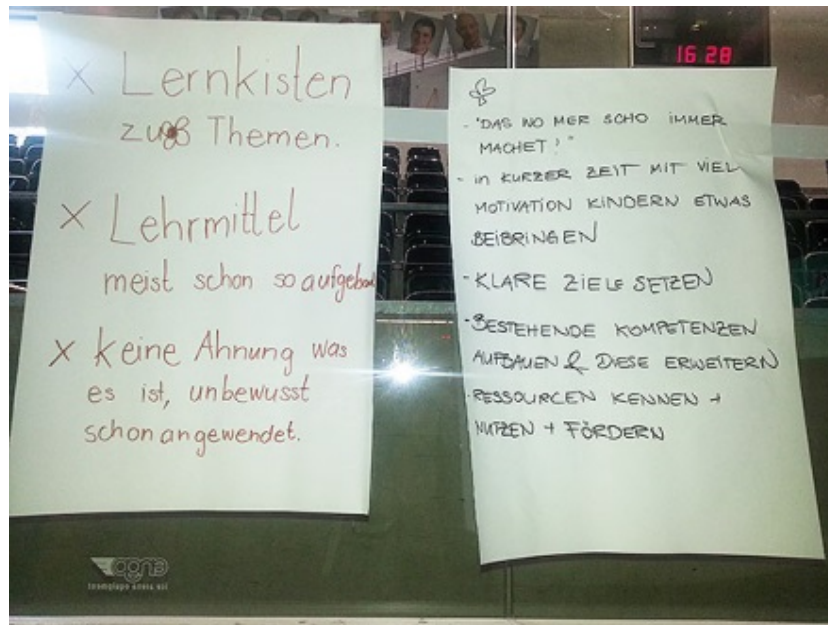 x Lernkisten
zu Themen.
x Lehrmittel
meist schon so aufgebau
x keine Ahnung was
es ist, unbewusst
schon angewendet.
16 28
- "DAS WO MER SCHO IMMER
MACHET!"
- in KURZER ZEIT MIT VIEL
MOTIVATION KINDERN ETWAS
BEIBRINGEN
- KLARE ZIELE SETZEN
- BESTEHENDE KOMPETENZEN
AUFBAUEN & DIESE ERWEITERN
- RESSOURCEN KENNEN +
NUTZEN + FÖRDERN